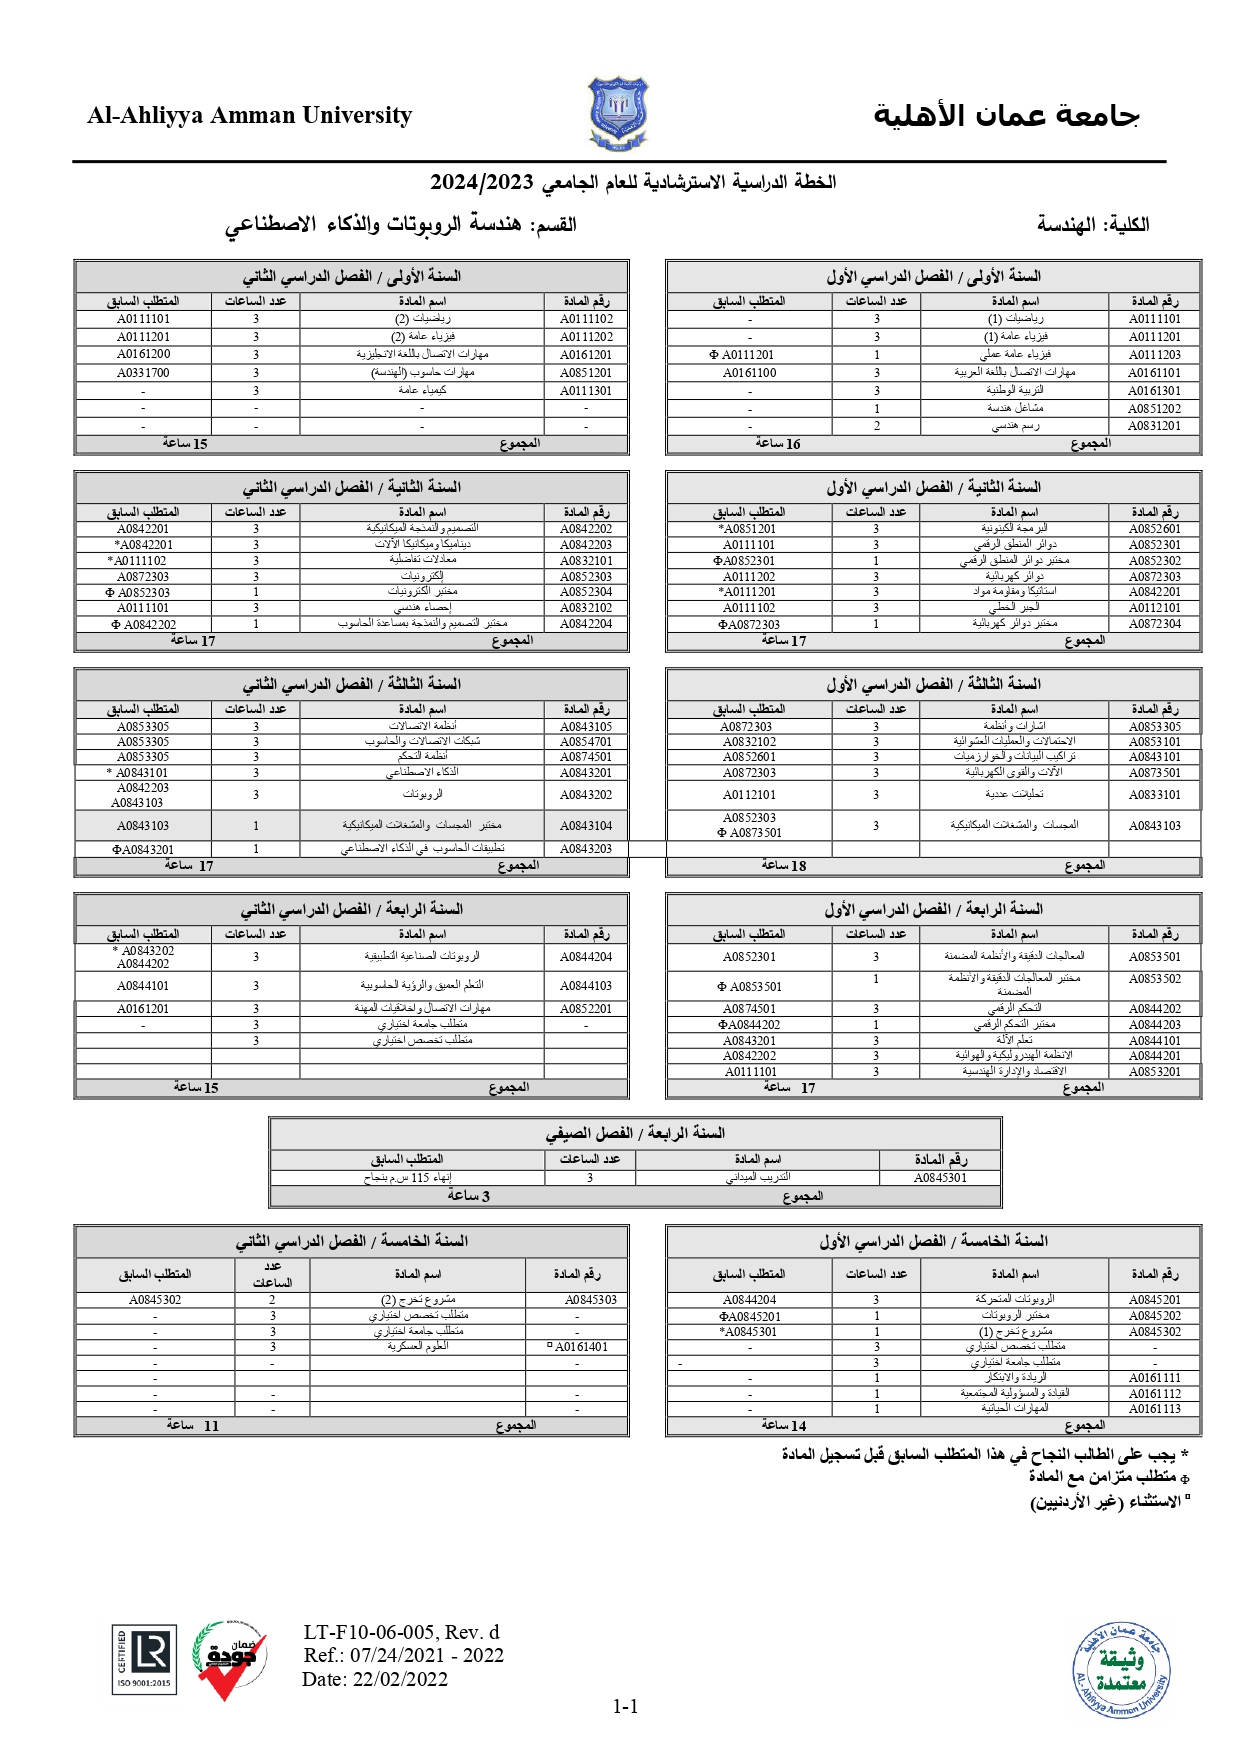 Al-Ahliyya Amman University
جامعة عمان الأهلية
الخطة الدراسية الاسترشادية للعام الجامعي 2024/2023
الكلية: الهندسة
القسم: هندسة الروبوتات والذكاء الاصطناعي
السنة الأولى / الفصل الدراسي الأول
رقم المادة اسم المادة عدد الساعات المتطلب السابق
A0111101 رياضيات (1) 3 -
A0111201 فيزياء عامة (1) 3 -
A0111203 فيزياء عامة عملي 1 Φ A0111201
A0161101 مهارات الاتصال باللغة العربية 3 A0161100
A0161301 التربية الوطنية 3 -
A0851202 مشاغل هندسة 1 -
A0831201 رسم هندسي 2 -
المجموع 16 ساعة
السنة الأولى / الفصل الدراسي الثاني
رقم المادة اسم المادة عدد الساعات المتطلب السابق
A0111102 رياضيات (2) 3 A0111101
A0111202 فيزياء عامة (2) 3 A0111201
A0161201 مهارات الاتصال باللغة الانجليزية 3 A0161200
A0851201 مهارات حاسوب (الهندسة) 3 A0331700
A0111301 كيمياء عامة 3 -
- - - -
- - - -
المجموع 15 ساعة
السنة الثانية / الفصل الدراسي الأول
رقم المادة اسم المادة عدد الساعات المتطلب السابق
A0852601 البرمجة الكينونية 3 *A0851201
A0852301 دوائر المنطق الرقمي 3 A0111101
A0852302 مختبر دوائر المنطق الرقمي 1 ΦA0852301
A0872303 دوائر كهربائية 3 A0111202
A0842201 استاتيكا ومقاومة مواد 3 *A0111201
A0112101 الجبر الخطي 3 A0111102
A0872304 مختبر دوائر كهربائية 1 ΦA0872303
المجموع 17 ساعة
السنة الثانية / الفصل الدراسي الثاني
رقم المادة اسم المادة عدد الساعات المتطلب السابق
A0842202 التصميم والنمذجة الميكانيكية 3 A0842201
A0842203 ديناميكا وميكانيكا الآلات 3 *A0842201
A0832101 معادلات تفاضلية 3 *A0111102
A0852303 إلكترونيات 3 A0872303
A0852304 مختبر الكترونيات 1 Φ A0852303
A0832102 إحصاء هندسي 3 A0111101
A0842204 مختبر التصميم والنمذجة بمساعدة الحاسوب 1 Φ A0842202
المجموع 17 ساعة
السنة الثالثة / الفصل الدراسي الأول
رقم المادة اسم المادة عدد الساعات المتطلب السابق
A0853305 اشارات وأنظمة 3 A0872303
A0853101 الاحتمالات والعمليات العشوائية 3 A0832102
A0843101 تراكيب البيانات والخوارزميات 3 A0852601
A0873501 الآلات والقوى الكهربائية 3 A0872303
A0833101 تحليلات عددية 3 A0112101
A0843103 المجسات والمشغلات الميكانيكية 3 A0852303
Φ A0873501
المجموع 18 ساعة
السنة الثالثة / الفصل الدراسي الثاني
رقم المادة اسم المادة عدد الساعات المتطلب السابق
A0843105 أنظمة الاتصالات 3 A0853305
A0854701 شبكات الاتصالات والحاسوب 3 A0853305
A0874501 أنظمة التحكم 3 A0853305
A0843201 الذكاء الاصطناعي 3 * A0843101
A0843202 الروبوتات 3 A0842203
A0843103
A0843104 مختبر المجسات والمشغلات الميكانيكية 1 A0843103
A0843203 تطبيقات الحاسوب في الذكاء الاصطناعي 1 ΦA0843201
المجموع 17 ساعة
السنة الرابعة / الفصل الدراسي الأول
رقم المادة اسم المادة عدد الساعات المتطلب السابق
A0853501 المعالجات الدقيقة والأنظمة المضمنة 3 A0852301
A0853502 مختبر المعالجات الدقيقة والأنظمة 1 Φ A0853501
المضمنة
A0844202 التحكم الرقمي 3 A0874501
A0844203 مختبر التحكم الرقمي 1 ΦA0844202
A0844101 تعلم الآلة 3 A0843201
A0844201 الانظمة الهيدروليكية والهوائية 3 A0842202
A0853201 الاقتصاد والإدارة الهندسية 3 A0111101
المجموع 17 ساعة
السنة الرابعة / الفصل الدراسي الثاني
رقم المادة اسم المادة عدد الساعات المتطلب السابق
A0844204 الروبوتات الصناعية التطبيقية 3 * A0843202
A0844202
A0844103 التعلم العميق والرؤية الحاسوبية 3 A0844101
A0852201 مهارات الاتصال واخلاقيات المهنة 3 A0161201
- متطلب جامعة اختياري 3 -
متطلب تخصص اختياري 3
المجموع 15 ساعة
السنة الرابعة / الفصل الصيفي
رقم المادة اسم المادة عدد الساعات المتطلب السابق
A0845301 التدريب الميداني 3 إنهاء 115 س.م بنجاح
المجموع 3 ساعة
السنة الخامسة / الفصل الدراسي الأول
رقم المادة اسم المادة عدد الساعات المتطلب السابق
A0845201 الروبوتات المتحركة 3 A0844204
A0845202 مختبر الروبوتات 1 ΦA0845201
A0845302 مشروع تخرج (1) 1 *A0845301
- متطلب تخصص اختياري 3 -
- متطلب جامعة اختياري 3 -
A0161111 الريادة والابتكار 1 -
A0161112 القيادة والمسؤولية المجتمعية 1 -
A0161113 المهارات الحياتية 1 -
المجموع 14 ساعة
السنة الخامسة / الفصل الدراسي الثاني
رقم المادة اسم المادة عدد الساعات المتطلب السابق
A0845303 مشروع تخرج (2) 2 A0845302
- متطلب تخصص اختياري 3 -
- متطلب جامعة اختياري 3 -
¤ A0161401 العلوم العسكرية 3 -
- - -
-
- - -
- - -
المجموع 11 ساعة
* يجب على الطالب النجاح في هذا المتطلب السابق قبل تسجيل المادة
Φ متطلب متزامن مع المادة
¤ الاستثناء (غير الأردنيين)
CERTIFIED
LR
ISO 9001:2015
ضمان
جودة
LT-F10-06-005, Rev. d
Ref.: 07/24/2021 - 2022
Date: 22/02/2022
1-1
جامعة عمان الأهلية
وثيقة
معتمدة
AL-Ahliyya Amman University